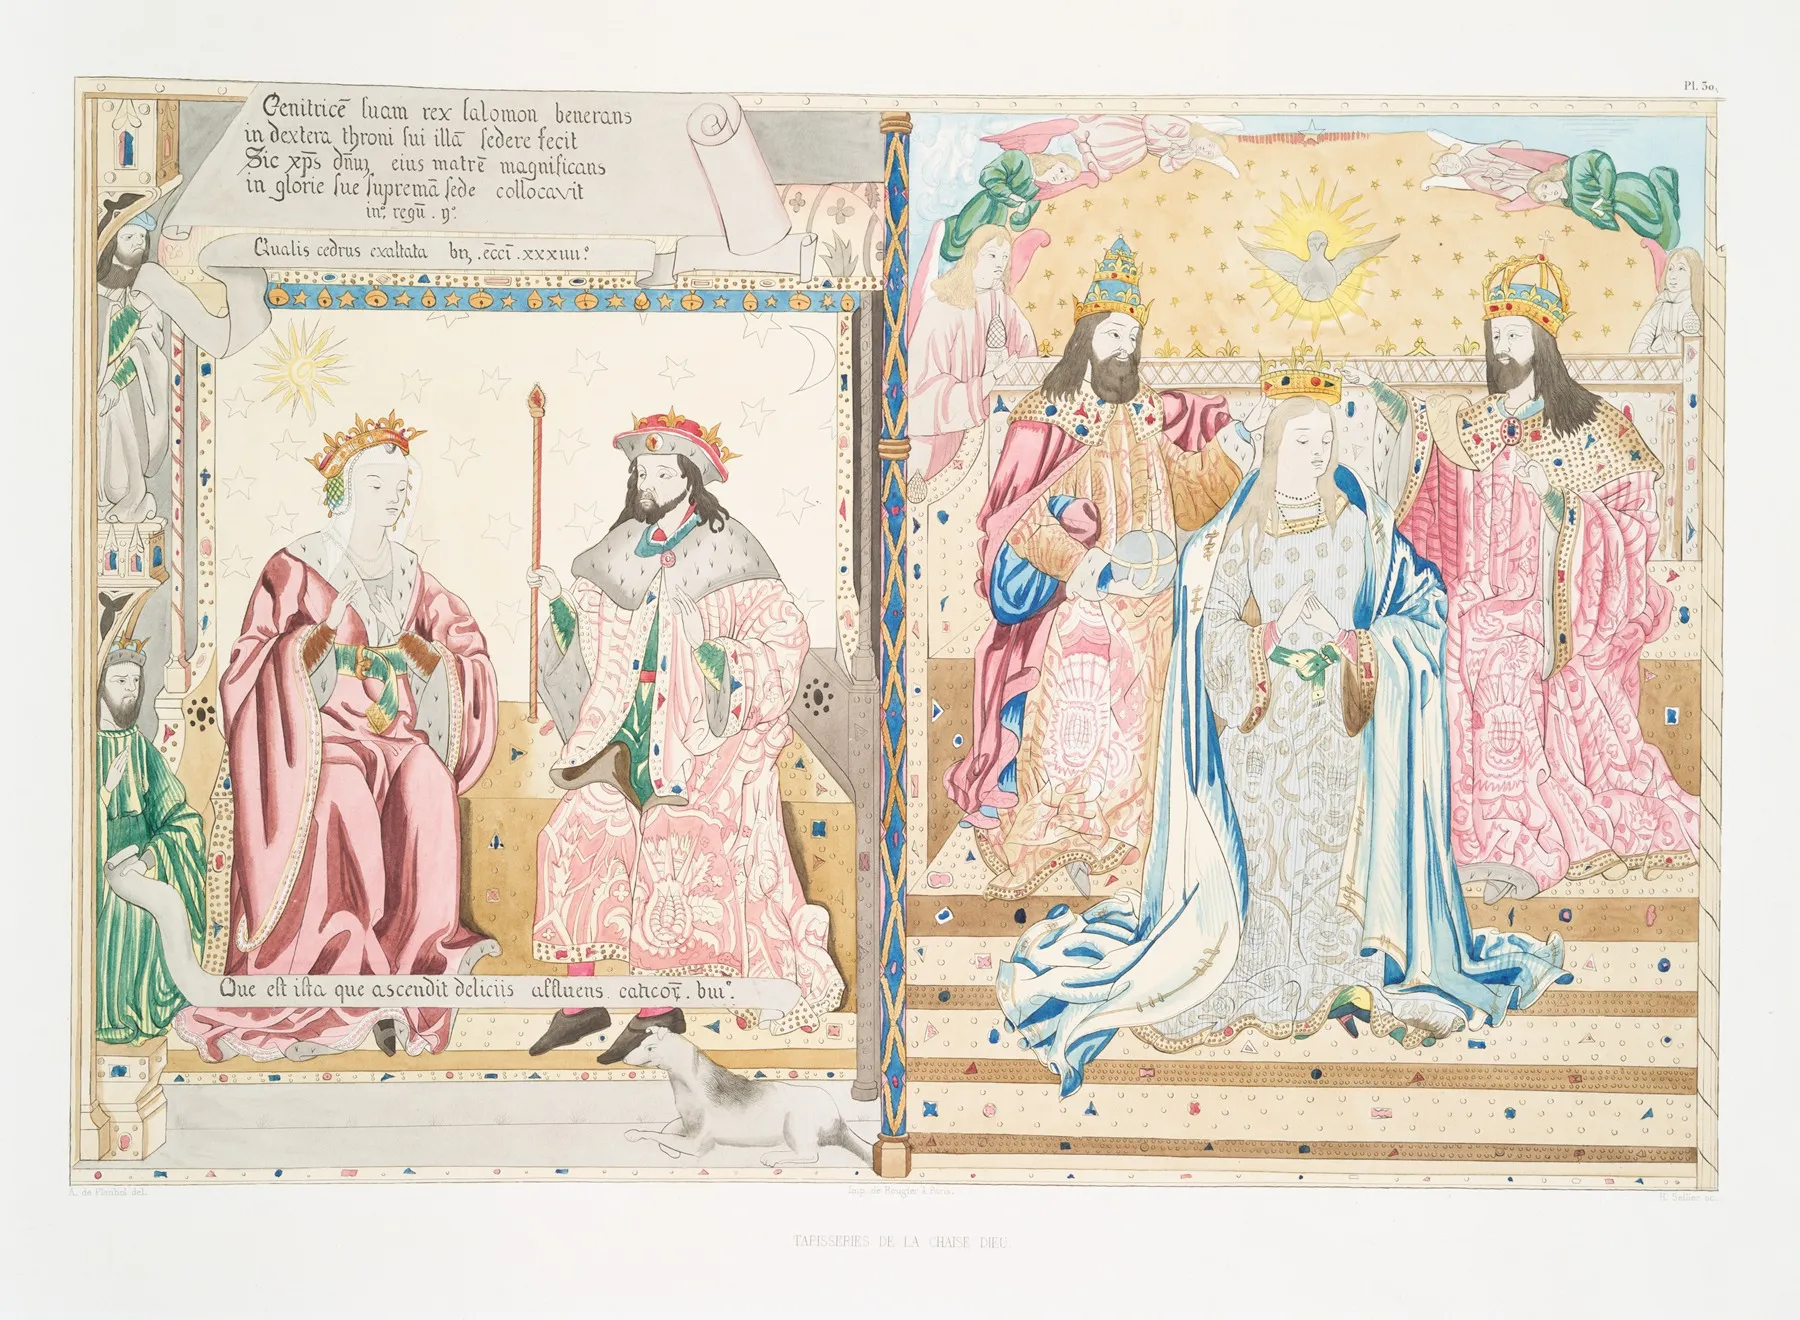 Pl. 30.
Genitricē suam rex salomon benerans
in dextera throni sui illā sedere fecit
Sic xp̄s dn̄uȝ eius matrē magnificans
in glorie sue supremā sede collocavit
inº regū . yº.
Qualis cedrus exaltata bn, .ēccī .xxxiiii.º
Que est ista que ascendit deliciis affluens. caticoꝝ. buiº.
A. de Planhol del.
Imp. de Rougier à Paris.
H. Sellier sc.
TAPISSERIES DE LA CHAISE DIEU.